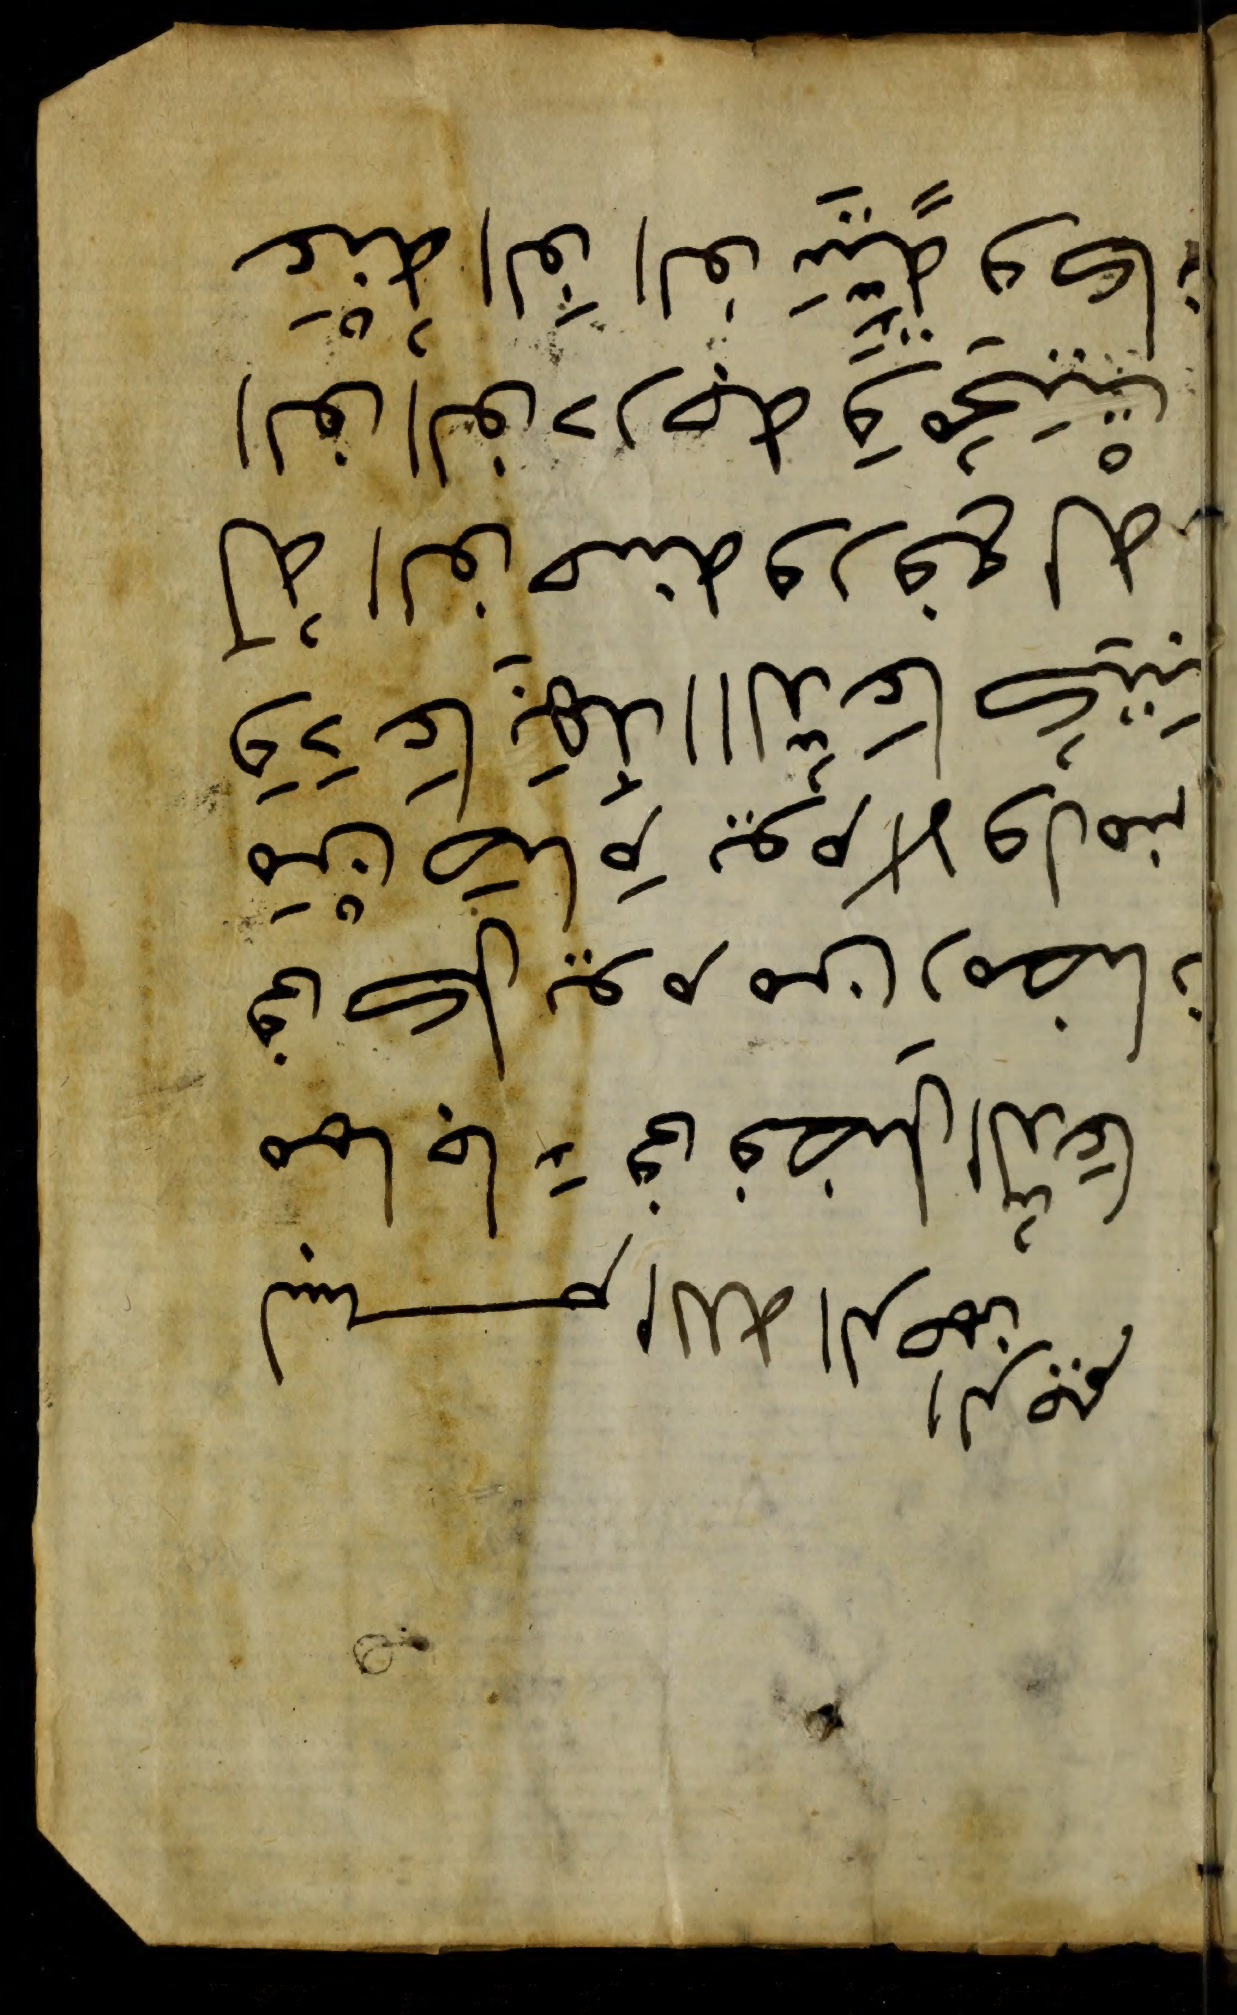 بسم الله الرحمن الرحيم
مما جا في فضل الدُّعا
في كل يوم من رمضان
مَنْ صَام يوم الاول منه
وَدَعَا بِهَذَا الدُّعَا كُتِبَ
لَهُ الف حسنه ورفع له
الف الف درجه وَمُحِيَتْ
عَنْهُ الف الف سَيِّئَةً وكان